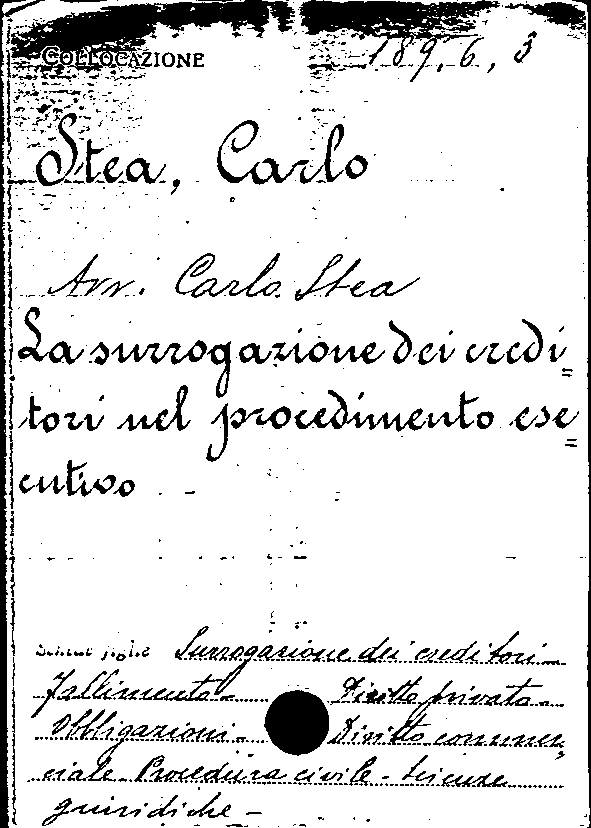 COLLOCAZIONE 189, 6, 3
Stea, Carlo
Avv. Carlo Stea
La surrogazione dei credi=
tori nel procedimento ese=
cutivo
Surrogazione dei creditori-
Fallimento- Diritto privato-
Obbligazioni- Diritto commer,
ciale- Procedura civile- Scienze
giuridiche-